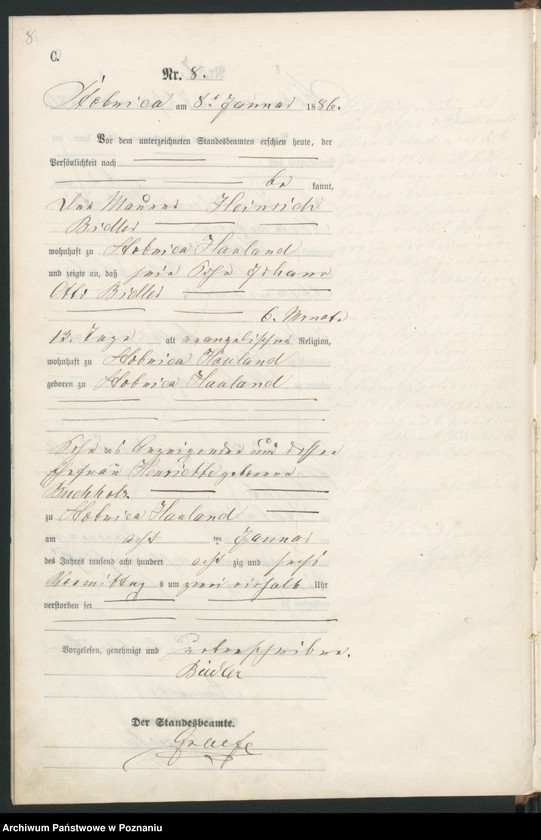 8
C.
Nr. 8.
am 8t Januar 1886.
Vor dem unterzeichneten Standesbeamten erschien heute, der
Persönlichkeit nach
be kannt,
der Maurer Heinrich
Bidler
wohnhaft zu Hauland
und zeigte an, daß sein Sohn Johann
Otto Bidler
6. Monate
12. Tage alt evangelischer Religion,
wohnhaft zu Hauland
geboren zu Hauland
Sohn des Anzeigenden und dessen
Ehefrau Henriette geborene
Buchholz
zu Hauland
am acht ten Januar
des Jahres tausend acht hundert acht zig und sechs
Vormittag s um zwei einhalb Uhr
verstorben sei
Vorgelesen, genehmigt und unterschrieben.
Bidler
Der Standesbeamte.
Graefe
Archiwum Państwowe w Poznaniu